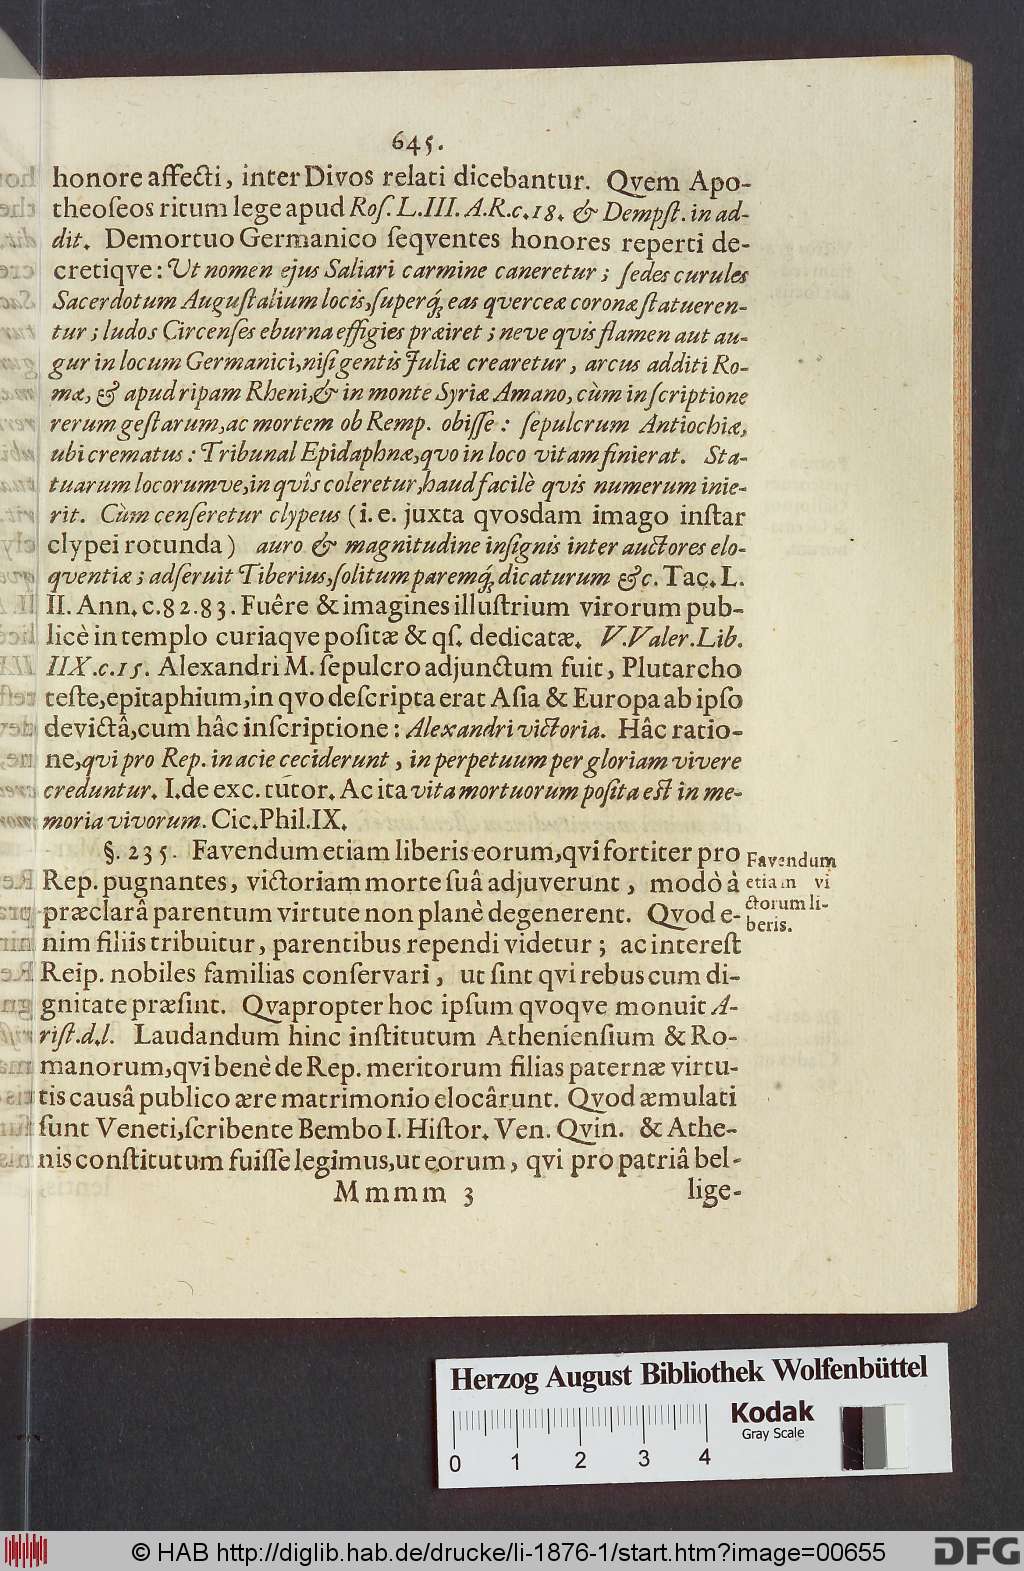 645.
honore affecti, inter Divos relati dicebantur. Qvem Apo-
theoseos ritum lege apud Ros. L. III. A. R. c. 18. & Dempst. in ad-
dit. Demortuo Germanico seqventes honores reperti de-
cretiqve: Ut nomen ejus Saliari carmine caneretur; sedes curules
Sacerdotum Augustalium locis, superq́; eas qverceæ coronæ statueren-
tur; ludos Circenses eburna effigies præiret; neve qvis flamen aut au-
gur in locum Germanici, nisi gentis Juliæ crearetur, arcus additi Ro-
mæ, & apud ripam Rheni, & in monte Syriæ Amano, cùm inscriptione
rerum gestarum, ac mortem ob Remp. obisse: sepulcrum Antiochiæ,
ubi crematus: Tribunal Epidaphnæ, qvo in loco vitam finierat. Sta-
tuarum locorumve, in qvîs coleretur, haud facilè qvis numerum inie-
rit. Cùm censeretur clypeus (i. e. juxta qvosdam imago instar
clypei rotunda) auro & magnitudine insignis inter auctores elo-
qventiæ; adseruit Tiberius, solitum paremq́; dicaturum &c. Tac. L.
II. Ann. c. 82. 83. Fuêre & imagines illustrium virorum pub-
licè in templo curiaqve positæ & qs. dedicatæ. V. Valer. Lib.
IIX. c. 15. Alexandri M. sepulcro adjunctum fuit, Plutarcho
teste, epitaphium, in qvo descripta erat Asia & Europa ab ipso
devictâ, cum hâc inscriptione: Alexandri victoria. Hâc ratio-
ne, qvi pro Rep. in acie ceciderunt, in perpetuum per gloriam vivere
creduntur. I. de exc. tutor. Ac ita vita mortuorum posita est in me-
moria vivorum. Cic. Phil. IX.
§. 235. Favendum etiam liberis eorum, qvi fortiter pro
Rep. pugnantes, victoriam morte suâ adjuverunt, modò à
præclarâ parentum virtute non planè degenerent. Qvod e-
nim filiis tribuitur, parentibus rependi videtur; ac interest
Reip. nobiles familias conservari, ut sint qvi rebus cum di-
gnitate præsint. Qvapropter hoc ipsum qvoqve monuit A-
rist. d. l. Laudandum hinc institutum Atheniensium & Ro-
manorum, qvi benè de Rep. meritorum filias paternæ virtu-
tis causâ publico ære matrimonio elocârunt. Qvod æmulati
sunt Veneti, scribente Bembo I. Histor. Ven. Qvin. & Athe-
nis constitutum fuisse legimus, ut eorum, qvi pro patriâ bel-
Mmmm 3 lige-
Favendum
etiam vi
ctorum li-
beris.
Herzog August Bibliothek Wolfenbüttel
Kodak
Gray Scale
0 1 2 3 4
© HAB http://diglib.hab.de/drucke/li-1876-1/start.htm?image=00655
DFG